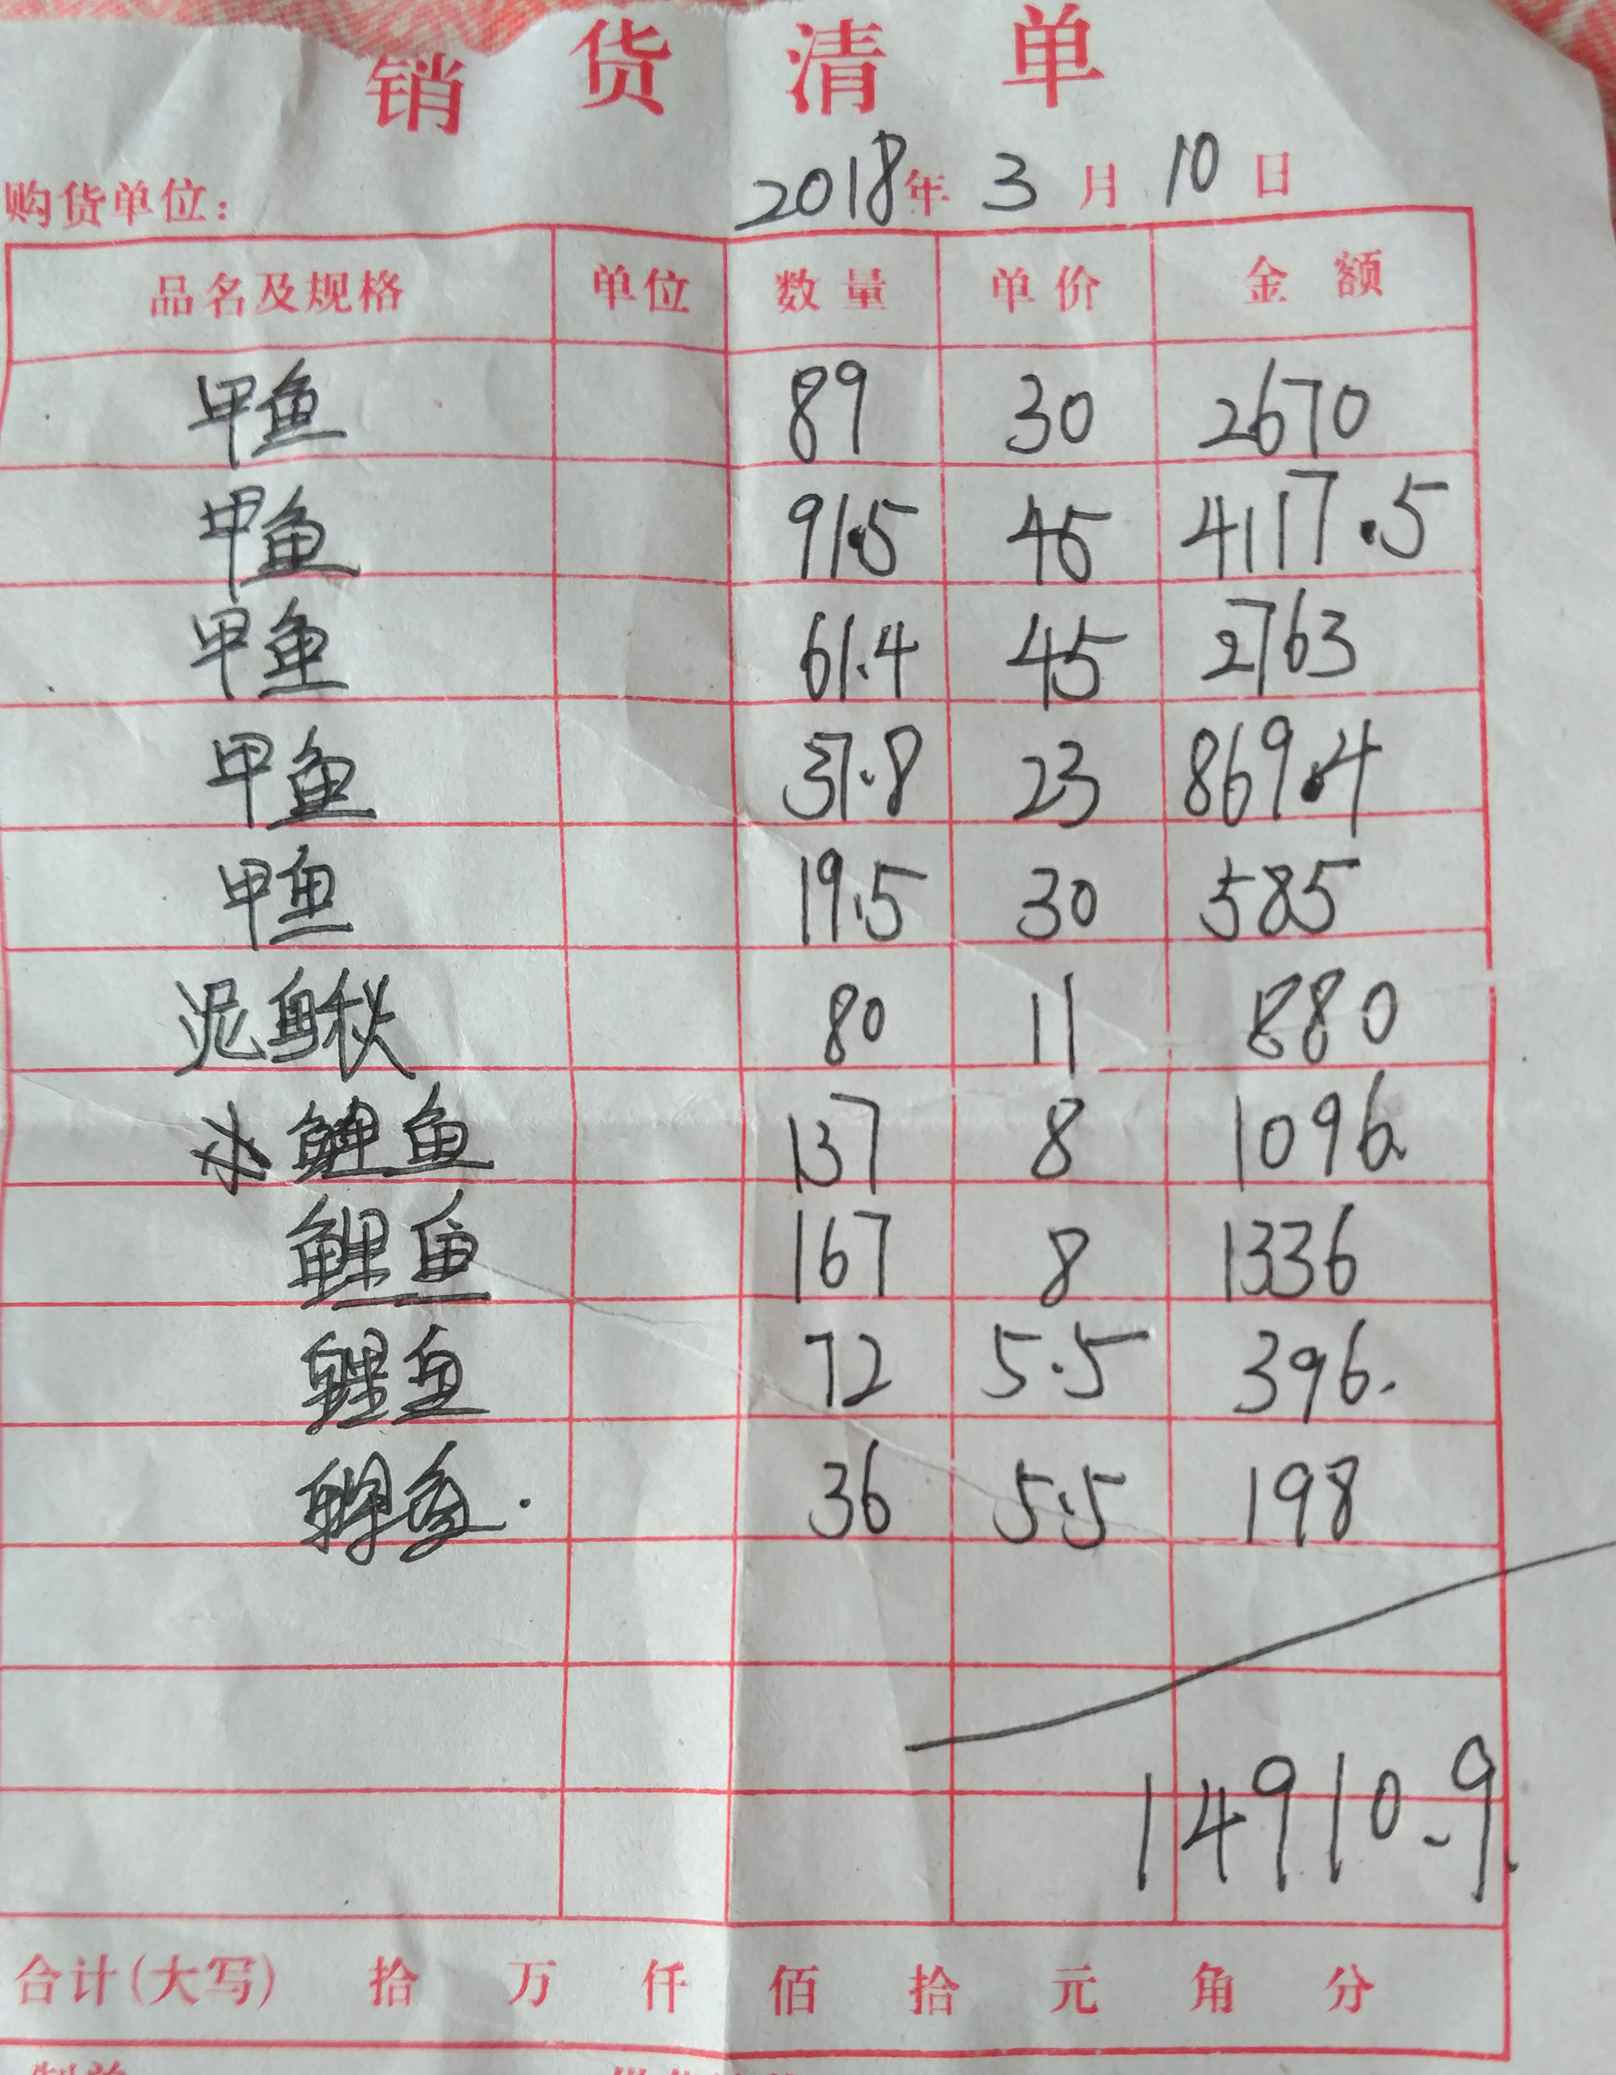 销货清单
购货单位： 2018年 3月 10日
品名及规格 单位 数量 单价 金额
甲鱼 89 30 2670
甲鱼 91.5 45 4117.5
甲鱼 61.4 45 2763
甲鱼 37.8 23 869.4
甲鱼 19.5 30 585
泥鳅 80 11 880
小鲤鱼 137 8 1096.
鲤鱼 167 8 1336
鲤鱼 72 5.5 396.
鱼. 36 5.5 198
14910.9
合计(大写) 拾 万 仟 佰 拾 元 角 分